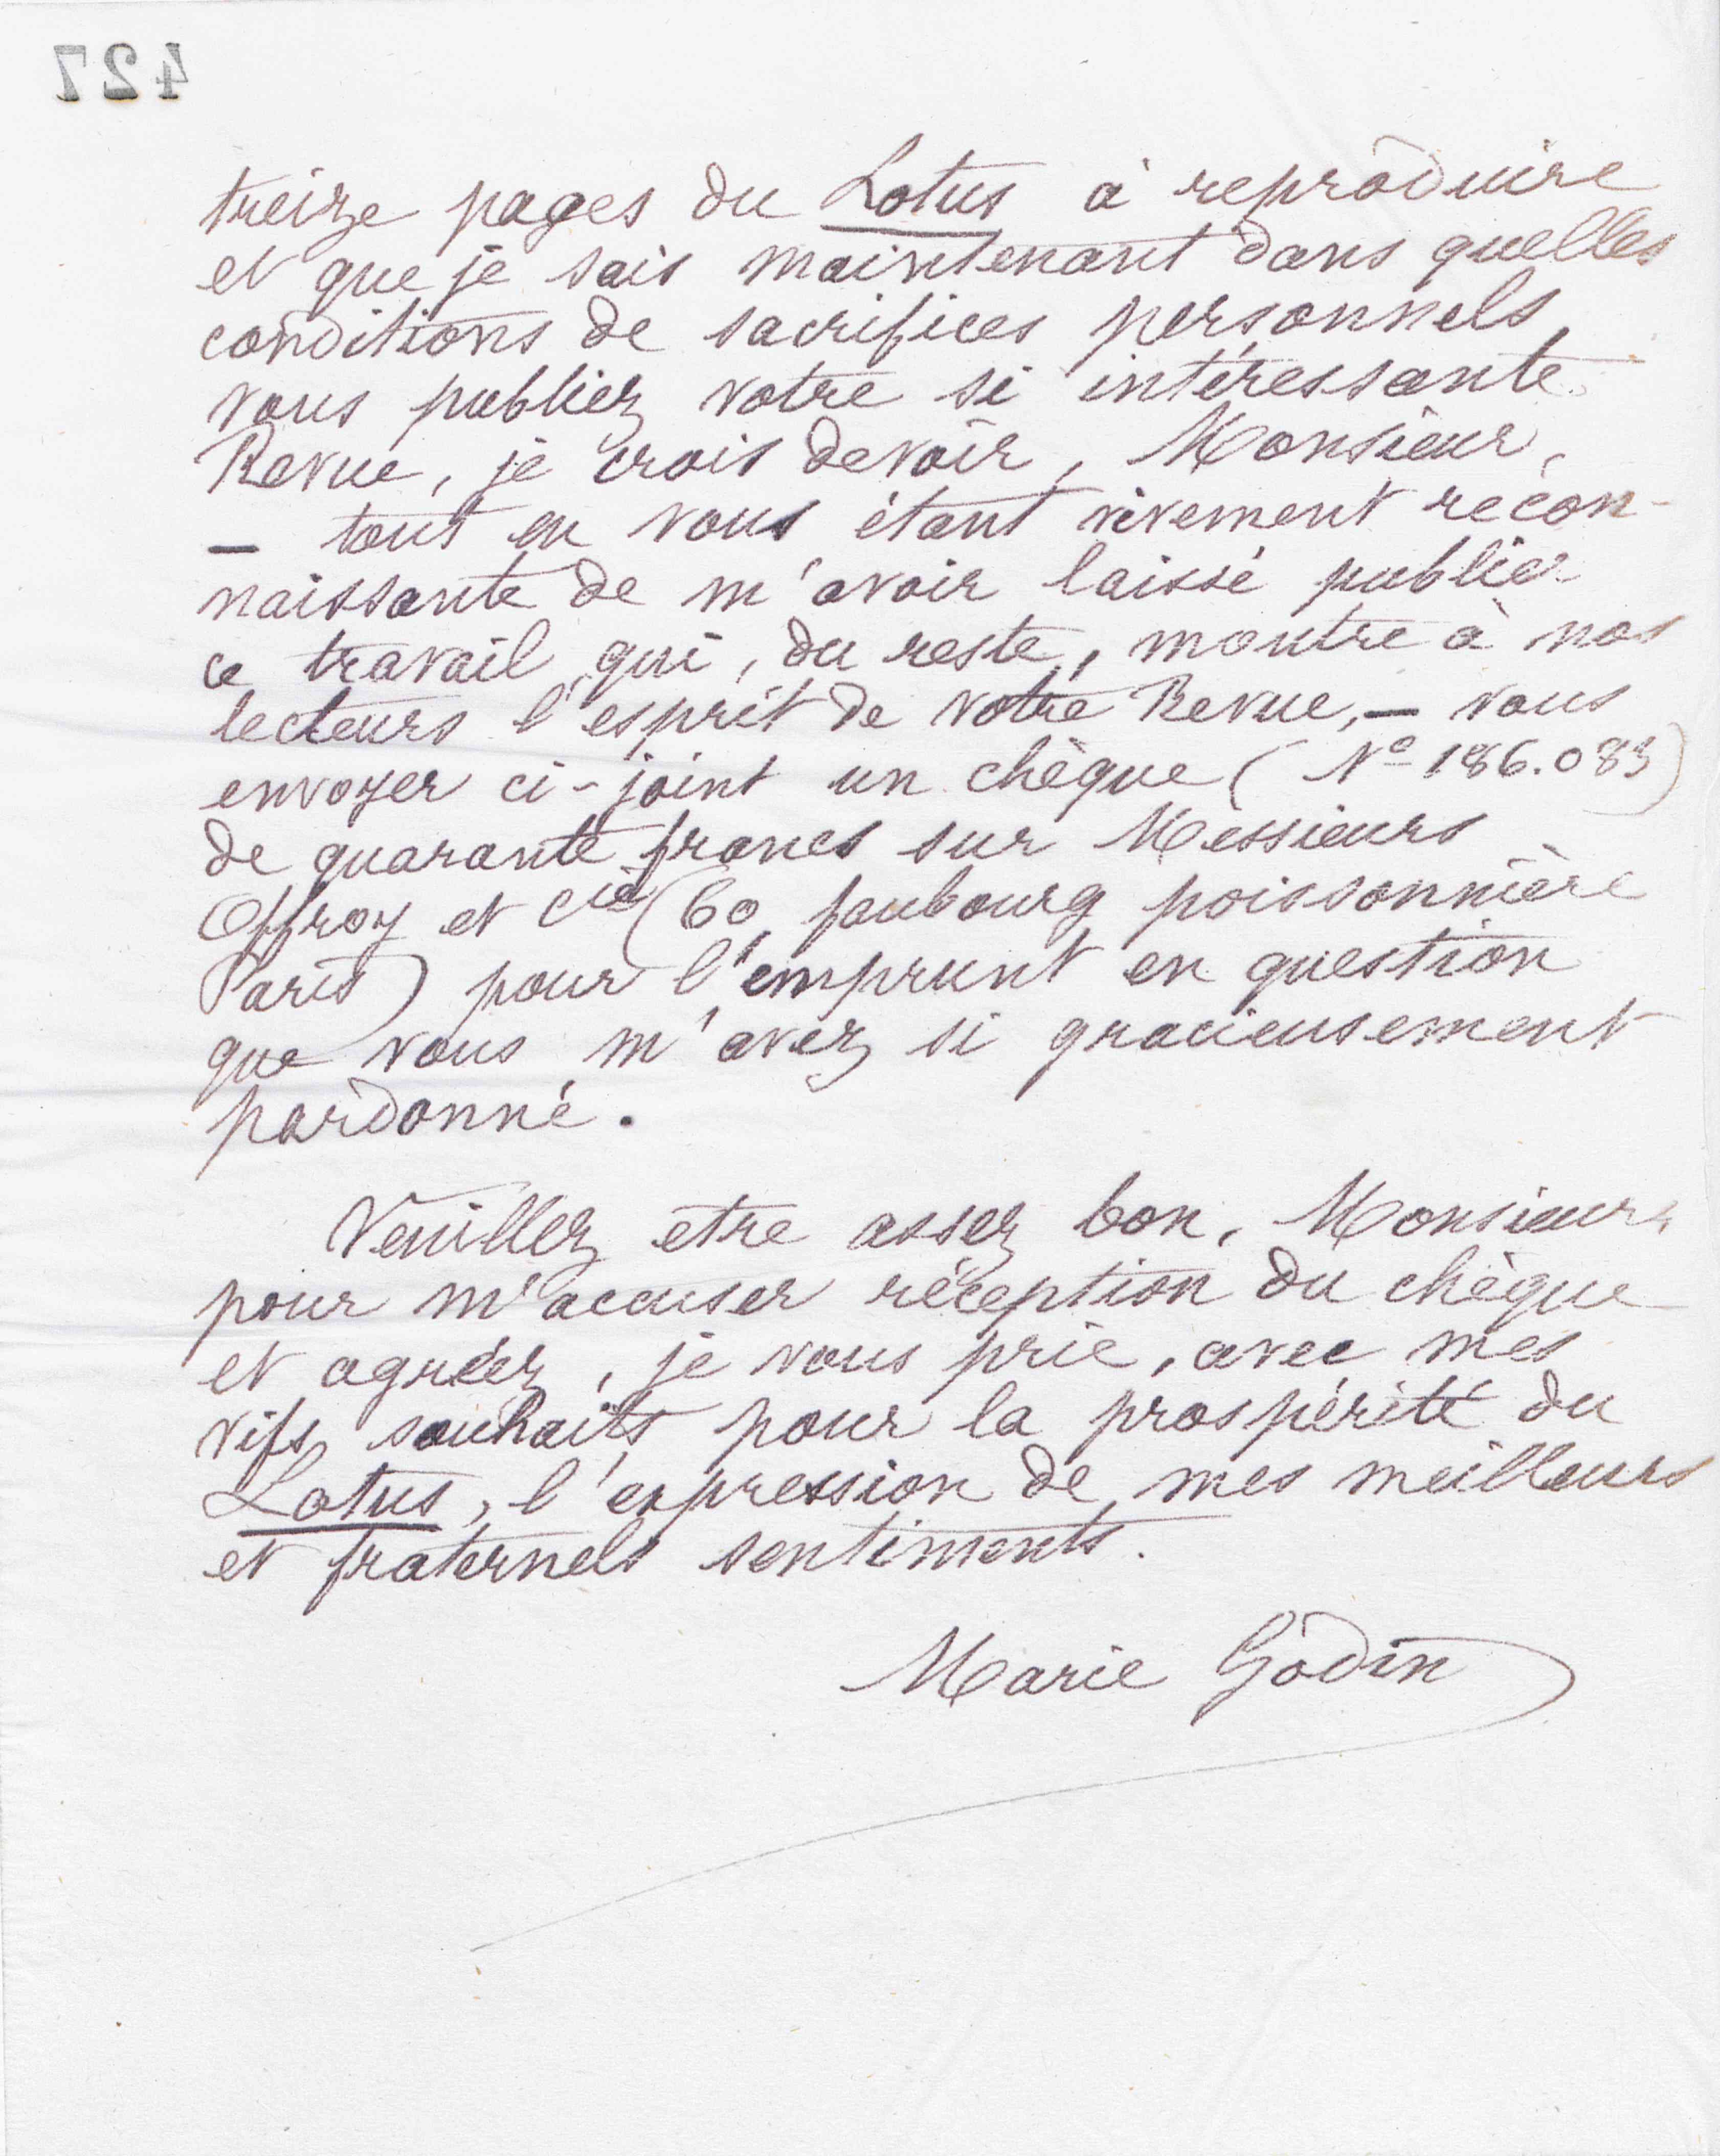 427
treize pages du Lotus à reproduire
et que je sais maintenant dans quelles
conditions de sacrifices personnels,
vous publiez votre si intéressante
Revue, je crois devoir, Monsieur,
— tout en vous étant vivement recon-
naissante de m'avoir laissé publier
ce travail qui, du reste, montre à nos
lecteurs l'esprit de votre Revue, — vous
envoyer ci-joint un chèque (No 186.083)
de quarante francs sur Messieurs
Offroy et Cie (60, faubourg poissonnière
Paris) pour l'emprunt en question
que vous m'avez si gracieusement
pardonné.
Veuillez etre assez bon, Monsieur,
pour m'accuser réception du chèque
et agréez, je vous prie, avec mes
vifs souhaits pour la prospérité du
Lotus, l'expression de mes meilleurs
et fraternels sentiments.
Marie Godin